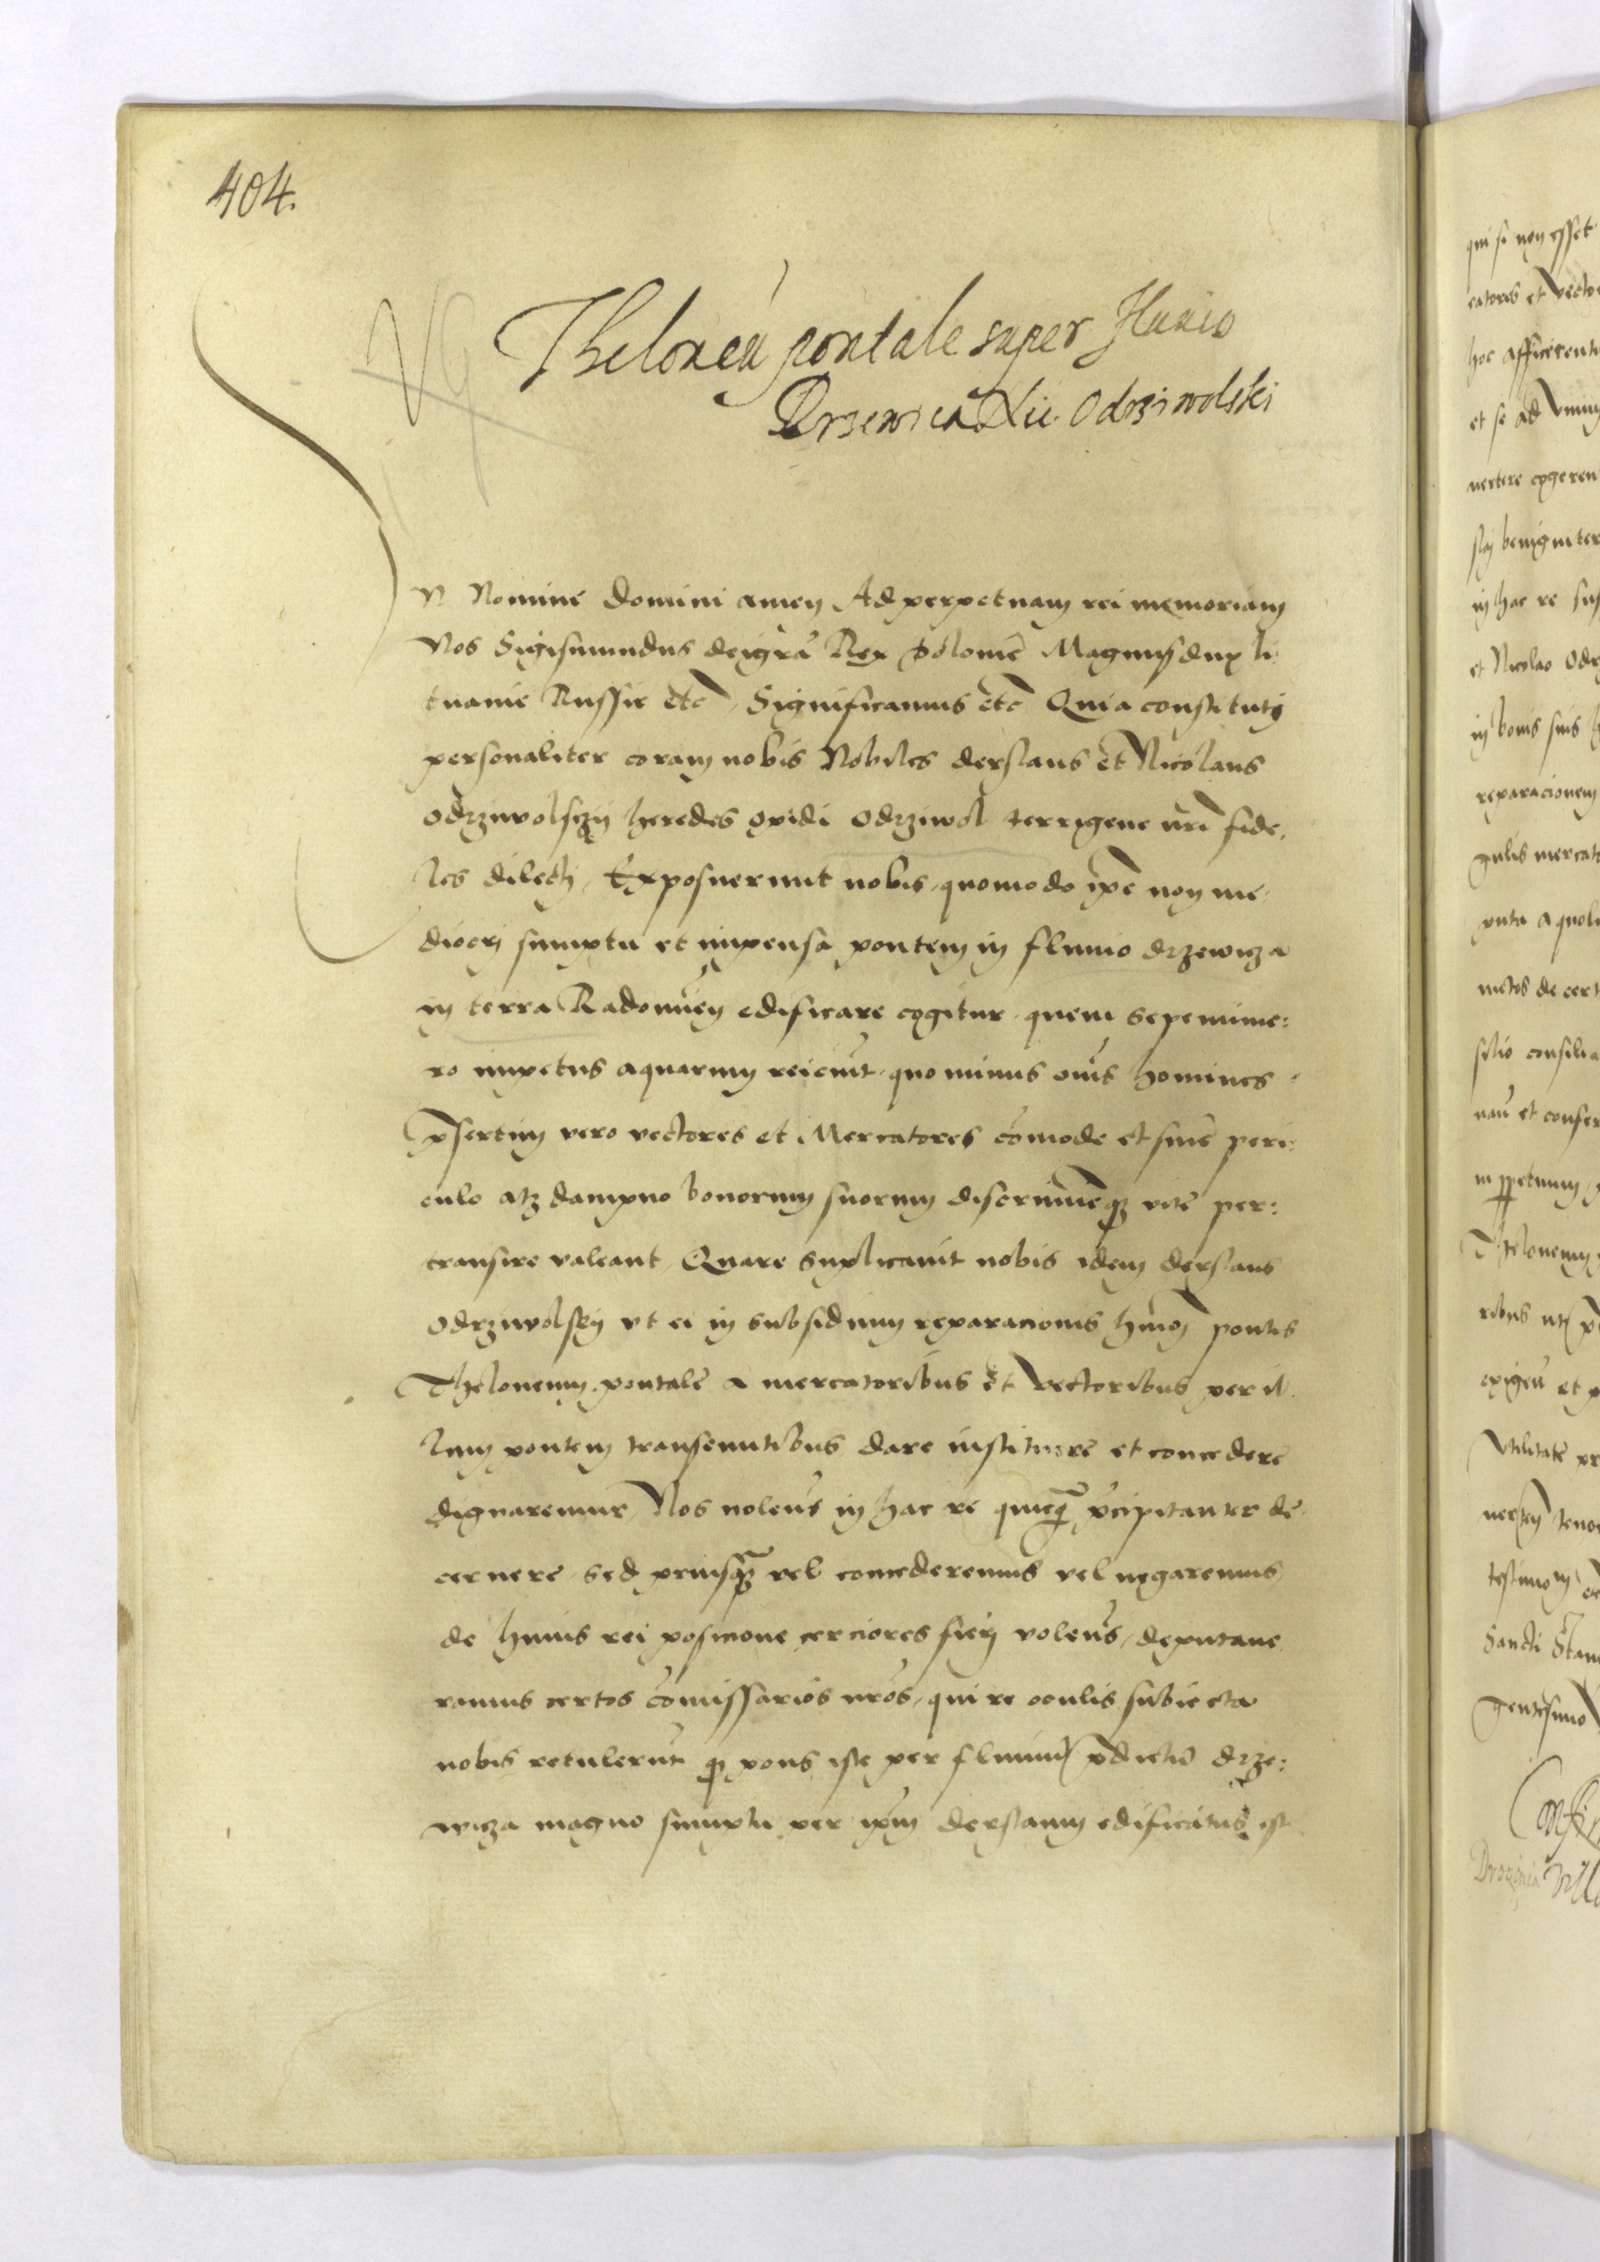 404.
Theloneū pontale super Fluuio
Drzewica Nic. Odrziwolski
N Nomine domini amen Ad perpetuam rei memoriam
Nos Sigismundus dei grā Rex Polonie Magnus dux li:
tuanie Russie etc Significamus etc Quia constituti
personaliter coram nobis Nobiles derslaus et Nicolaus
Odrziwolsczij heredes opidi Odrziwol terrigene nri fide,
les dilecti, Exposuerunt nobis, quomodo ipe non me,
diocri sumptu et impensa pontem in fluuio drzewicza
in terra Radomien edificare cogitur, quem sepenume:
ro impetus aquarum reiciut, quo minus oms homines
psertim vero vectores et Mercatores comode et sine peri:
culo atz dampno bonorum suorum discrimineqz vite per:
transire valeant, Quare suplicauit nobis idem derslaus
Odrziwolskij vt ei in subsidium reparacionis hmoi pontis
Theloneum pontale a mercatoribus et vectoribus per il,
lum pontem transeuntibus dare instituere et concedere
dignaremur, Nos nolens in hac re quicqz pcipitanter de,
cernere, sed priusqz vel concederemus vel negaremus,
de huius rei posicione cerciores fieri volens, deputaue
ramus certos comissarios nros, qui re oculis subiecta
nobis retulerut qz pons iste per fluuiu pdictu drze:
wicza magno sumptu per ipm derslaum edificatus est
qui si non esset
catores et vecto
hoc afficerentu
et se ad
uertere cogeren
benigniter
in hac re
et Nicolao Odr
in bonis suis
reparacionem
gulis mercato
a quoli
de cert
consilia
et conser
in ppetuum
Theloneum
et
Vtilitate
tenor
Sancti Stan
gentesimo